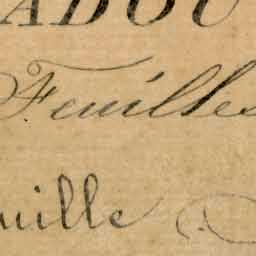 ADOU
Feuilles
uille